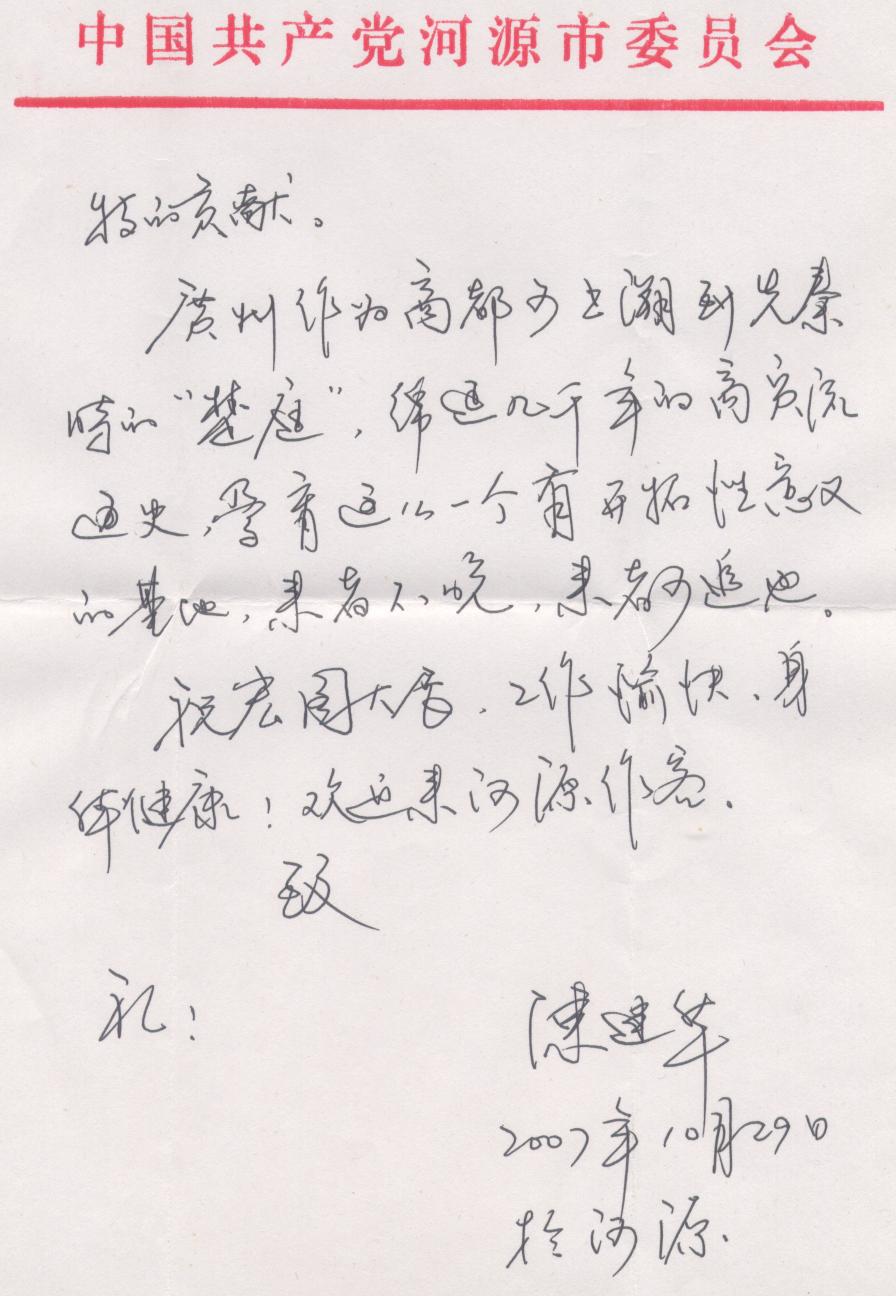 中国共产党河源市委员会
特的贡献。
广州作为商都可上溯到先秦
时的“楚庭”，绵延几千年的商贸流
通史，孕育这么一个有开拓性意义
的基地，来者不晚，来者可追也。
祝宏图大展、工作愉快、身
体健康！欢迎来河源作客。
致
礼！
陈建华
2007年10月29日
于河源.